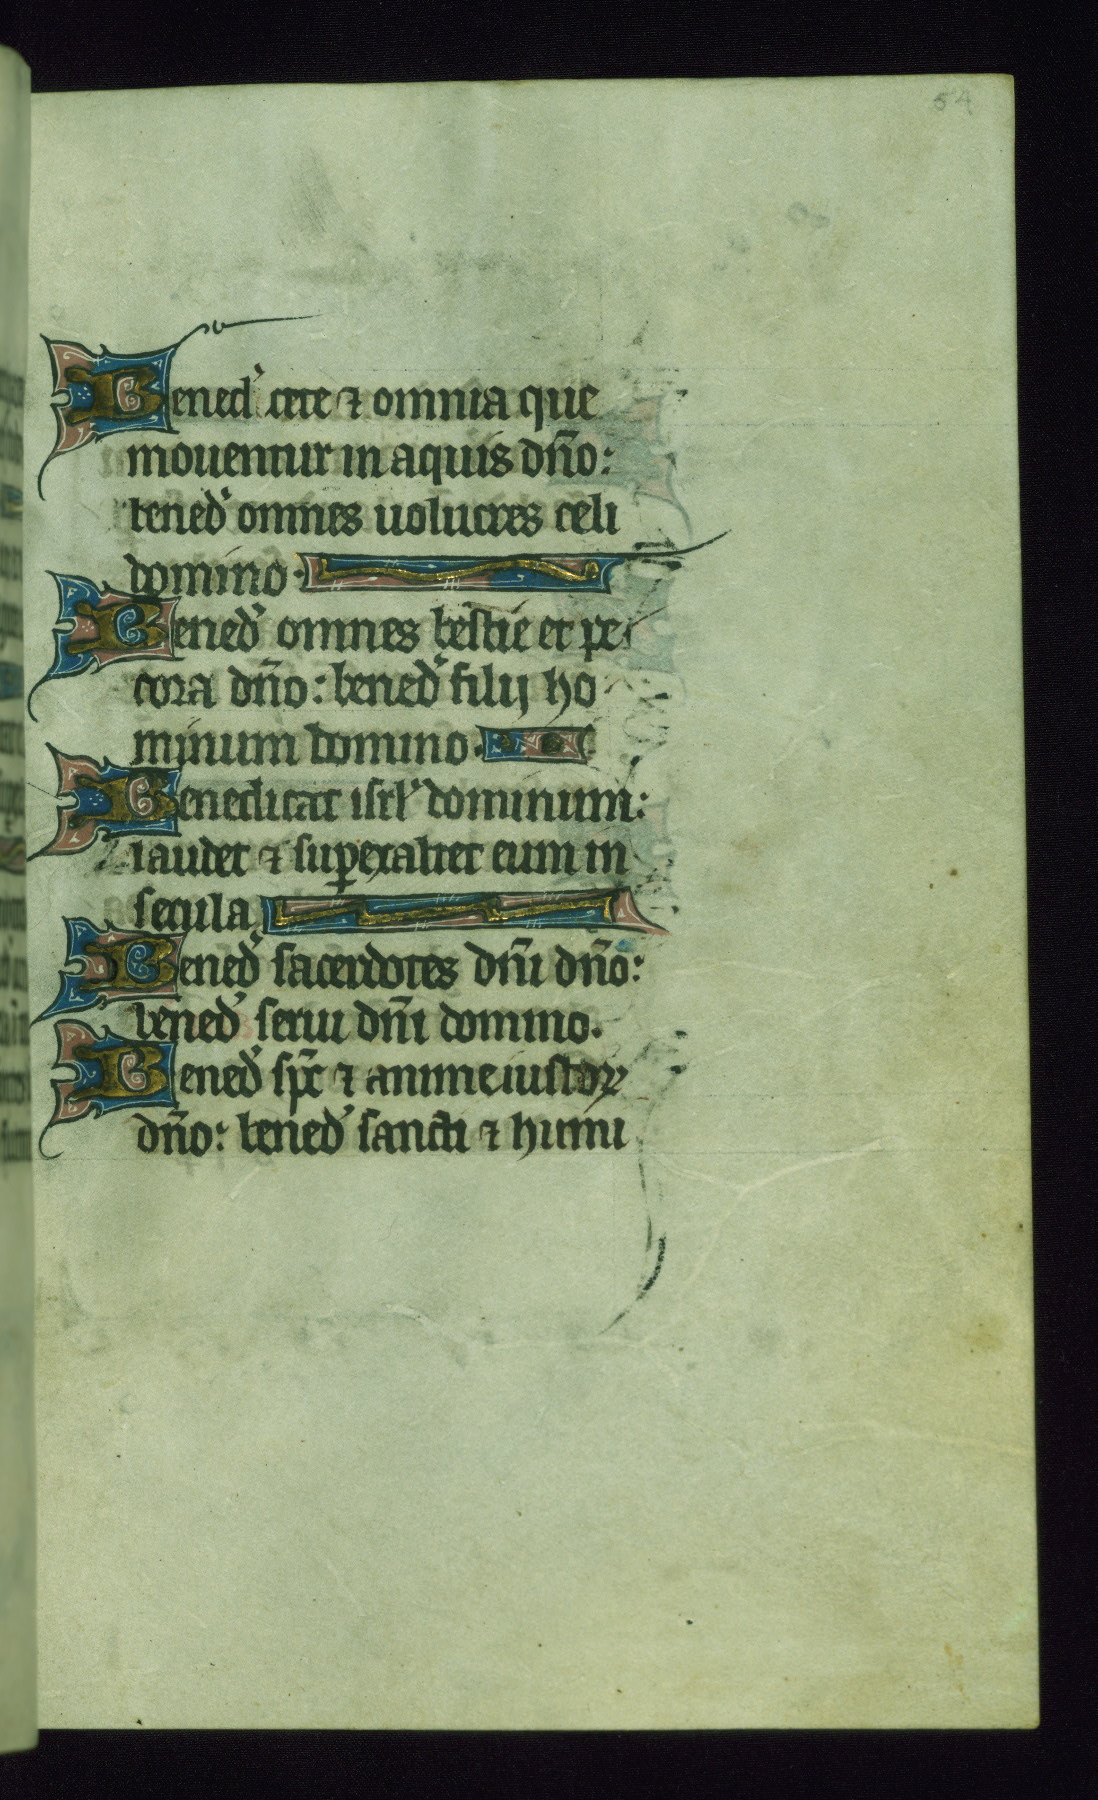 54
Bened' cete ⁊ omnia que
mouentur in aquis dn̄o:
bened' omnes uolucres celi
domino.
Bened' omnes bestie et pe
cora dn̄o: bened' filij ho
minum domino.
Benedicat isrl' dominum:
laudet ⁊ suꝑexaltet eum in
secula.
Bened' sacerdotes dn̄i dn̄o:
bened' serui dn̄i domino.
Bened' sp̄c ⁊ anime iustoꝝ
dn̄o: bened' sancti ⁊ humi